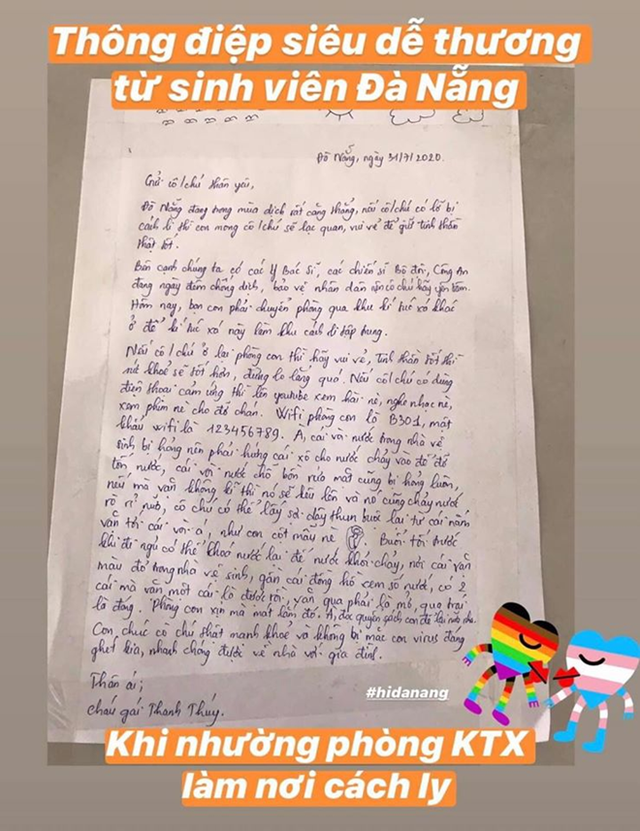 Thông điệp siêu dễ thương
từ sinh viên Đà Nẵng
Đà Nẵng, ngày 31/7/2020.
Gửi cô/chú thân yêu,
Đà Nẵng đang trong mùa dịch rất căng thẳng, nếu cô/chú có lỡ bị
cách li thì con mong cô/chú sẽ lạc quan, vui vẻ để giữ tinh thần
thật tốt.
Bên cạnh chúng ta có các Y Bác Sĩ, các chiến sĩ Bộ đội, Công An
đang ngày đêm chống dịch, bảo vệ nhân dân nên cô chú hãy yên tâm.
Hôm nay, bọn con phải chuyển phòng qua khu kí túc xá khác
ở để kí túc xá này làm khu cách li tập trung.
Nếu cô/chú ở lại phòng con thì hãy vui vẻ, tinh thần tốt thì
sức khoẻ sẽ tốt hơn, đừng lo lắng quá. Nếu cô/chú có dùng
điện thoại cảm ứng thì lên youtube xem hài nè, nghe nhạc nè,
xem phim nè cho đỡ chán. Wifi phòng con là B301, mật
khẩu wifi là 123456789. À, cái vòi nước trong nhà vệ
sinh bị hỏng nên phải hứng cái xô cho nước chảy vào đó để đỡ
tốn nước, cái vòi nước chỗ bồn rửa mặt cũng bị hỏng luôn,
nếu mà vặn không kĩ thì nó sẽ kêu lên và nó cũng chảy nước
rò rỉ nữa, cô chú có thể lấy sợi dây thun buộc lại từ cái nắm
vặn tới cái vòi á, như con cột mấy nè Buổi tối trước
khi đi ngủ có thể khoá nước lại để nước khỏi chảy, nơi cái van
màu đỏ trong nhà vệ sinh, gần cái đồng hồ xem số nước, có 2
cái mà vặn một cái là được rồi, vặn qua phải là mở, qua trái
là đóng. Phòng con xịn mà mát lắm đó. À, đọc quyển sách con để lại nữa nha.
Con chúc cô chú thật mạnh khoẻ và không bị mắc con virus đáng
ghét kia, nhanh chóng được về nhà với gia đình.
Thân ái;
cháu gái Thanh Thúy.
#hidanang
Khi nhường phòng KTX
làm nơi cách ly